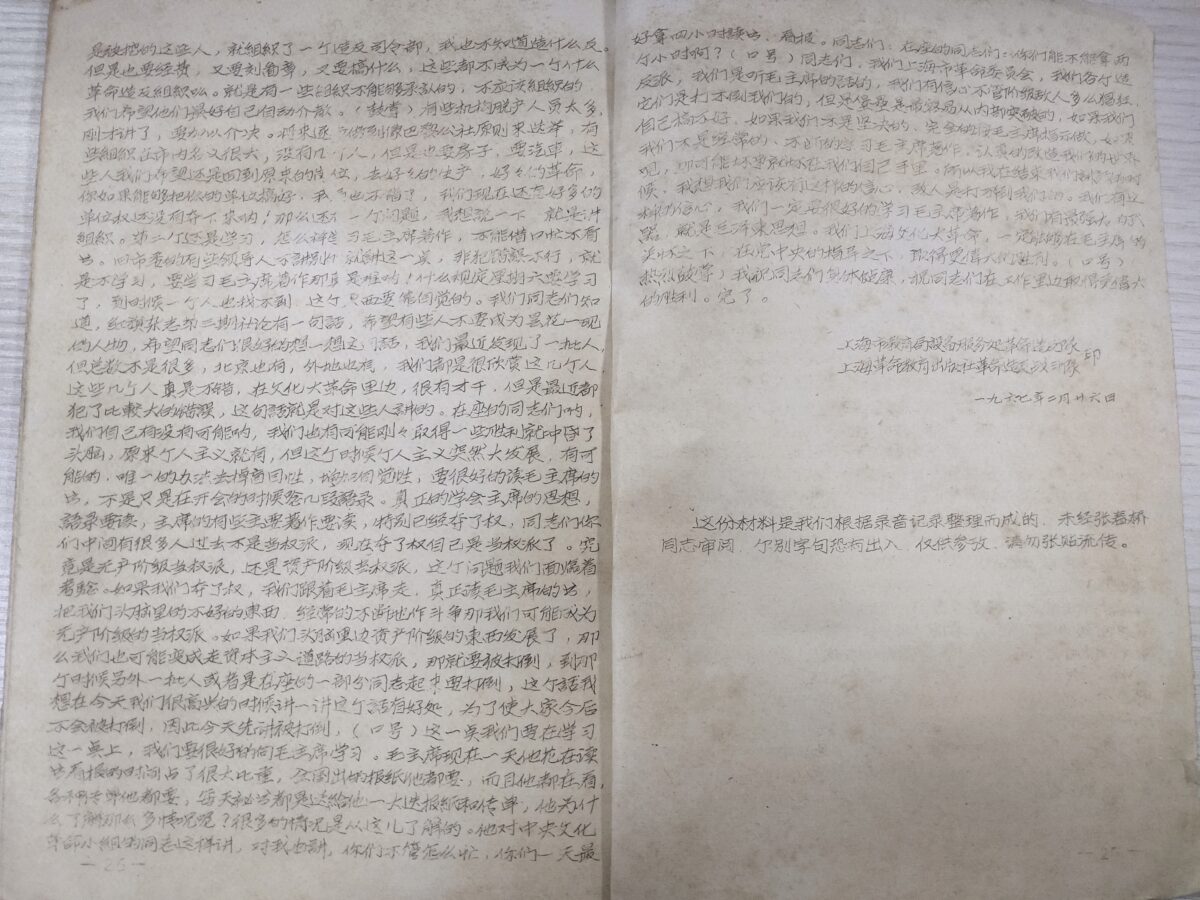 是被捂的这些人，就组织了一个造反司令部，我也不知道造什么反。
但是也要经费，又要刻图章，又要搞什么，这些都不成为一个什么
革命造反组织么。就是有一些组织不能够承认的，不应该组织的
我们希望他们最好自己自动介散。（鼓掌）有些机构脱产人员太多，
刚才讲了，要加以介决。将来逐 巴黎公社原则来选举，有
些组织在市内名义很大，没有几个人，但是也要房子，要汽车，这
些人我们希望还是回到原来的 位，去好々的生产，好々的革命，
你如果能够把你的单位搞好，我 也不错了，我们现在还有好多的
单位权还没有夺下来呐！那么还 一个问题，我想说一下，就是讲
组织。第二个还是学习，怎么样 习毛主席著作，不能借口忙不看
书。旧市委的有些领导人 就 这一点，非犯错误不行，就
是不学习，要学习毛主席著作那真是难呐！什么规定星期六要学习
了，到时候一个人也找不到，这个 要靠自觉的。我们同志们知
道，红旗杂志第三期社论有一句話，希望有些人不要成为昙花一现
的人物，希望同志们很好的想一想这句話，我们最近发现了一批人，
但总数不是很多，北京也有，外地也有，我们都是很欣赏这几个人，
这些几个人真是不错，在文化大革命里边，很有才干，但是最近都
犯了比較大的错误，这句話就是对这些人講的。在座的同志们呐，
我们自己有没有可能呐，我们也有可能刚々取得一些胜利就冲昏了
头脑，原来个人主义就有，但这个时候个人主义突然大发展，有可
能的，唯一的办法去掉盲目性，增加自觉性，要很好的读毛主席的
书，不是只是在开会的时候念几段語录。真正的学会主席的思想，
語录要读，主席的有些主要著作要读，特别已经夺了权，同志们你
们中间有很多人过去不是当权派，现在夺了权自己是当权派了。究
竟是无产阶级当权派，还是资产阶级当权派，这个问题我们面临着
考验。如果我们夺了权，我们跟着毛主席走，真正读毛主席的书，
把我们头脑里的不好的東西，经常的不断地作斗争那我们可能成为
无产阶级的当权派。如果我们头脑里边资产阶级的東西发展了，那
么我们也可能变成走资本主义道路的当权派，那就要被打倒，到那
个时候另外一批人或者是在座的一部分同志起来要打倒，这个話我
想在今天我们很高兴的时候讲一讲这个話有好处，为了使大家今后
不会被打倒，因此今天先讲被打倒，（口号）这一点我们要在学习
这一点上，我们要很好的向毛主席学习。毛主席现在一天他花在读
书看报的时间占了很大比重，全国出的报纸他都要，而且他都在看，
各种传单他都要，每天秘书都是送给他一大迭报紙和传单，他为什
么了解那么多情况呢？很多的情况是从这儿了解的。他对中央文化
革命小组的同志这样讲，对我也讲，你们不管怎么忙，你们一天最
— 25 —
好算四小时读书、看报。同志们：在座的同志们：你们能不能算两
个小时啊？（口号）同志们，我们上海市革命委员会，我们各个造
反派，我们是听毛主席的話的，我们有信心不管阶级敌人多么猖狂，
它们是打不倒我们的，但是堡垒是最容易从内部突破的，如果我们
自己搞不好，如果我们不是坚决的、完全的按毛主席指示做，如果
我们不是经常的、不断的学习毛主席著作，认真的改造我们的世界
观，那可能坏要就坏在我们自己手里。所以我在结束我们讲話的时
候，我想我们应该有这样的信心，敌人是打不倒我们的。我们有这
种的信心，我们一定要很好的学习毛主席著作，我们有最强大的武
器，就是毛泽東思想。我们上海文化大革命，一定能够在毛主席的
关怀之下，在党中央的指导之下，取得更伟大的胜利。（口号）
热烈鼓掌）我祝同志们身体健康，祝同志们在工作里边取得更偉大
的胜利。完了。
上海市教育局 服务处革命造反队
上海革命教育出版社革命造反 印
一九六七年二月廿六日
这份材料是我们根据录音记录整理而成的，未经张春桥
同志审阅，个别字句恐有出入，仅供参攷，请勿张贴流传。